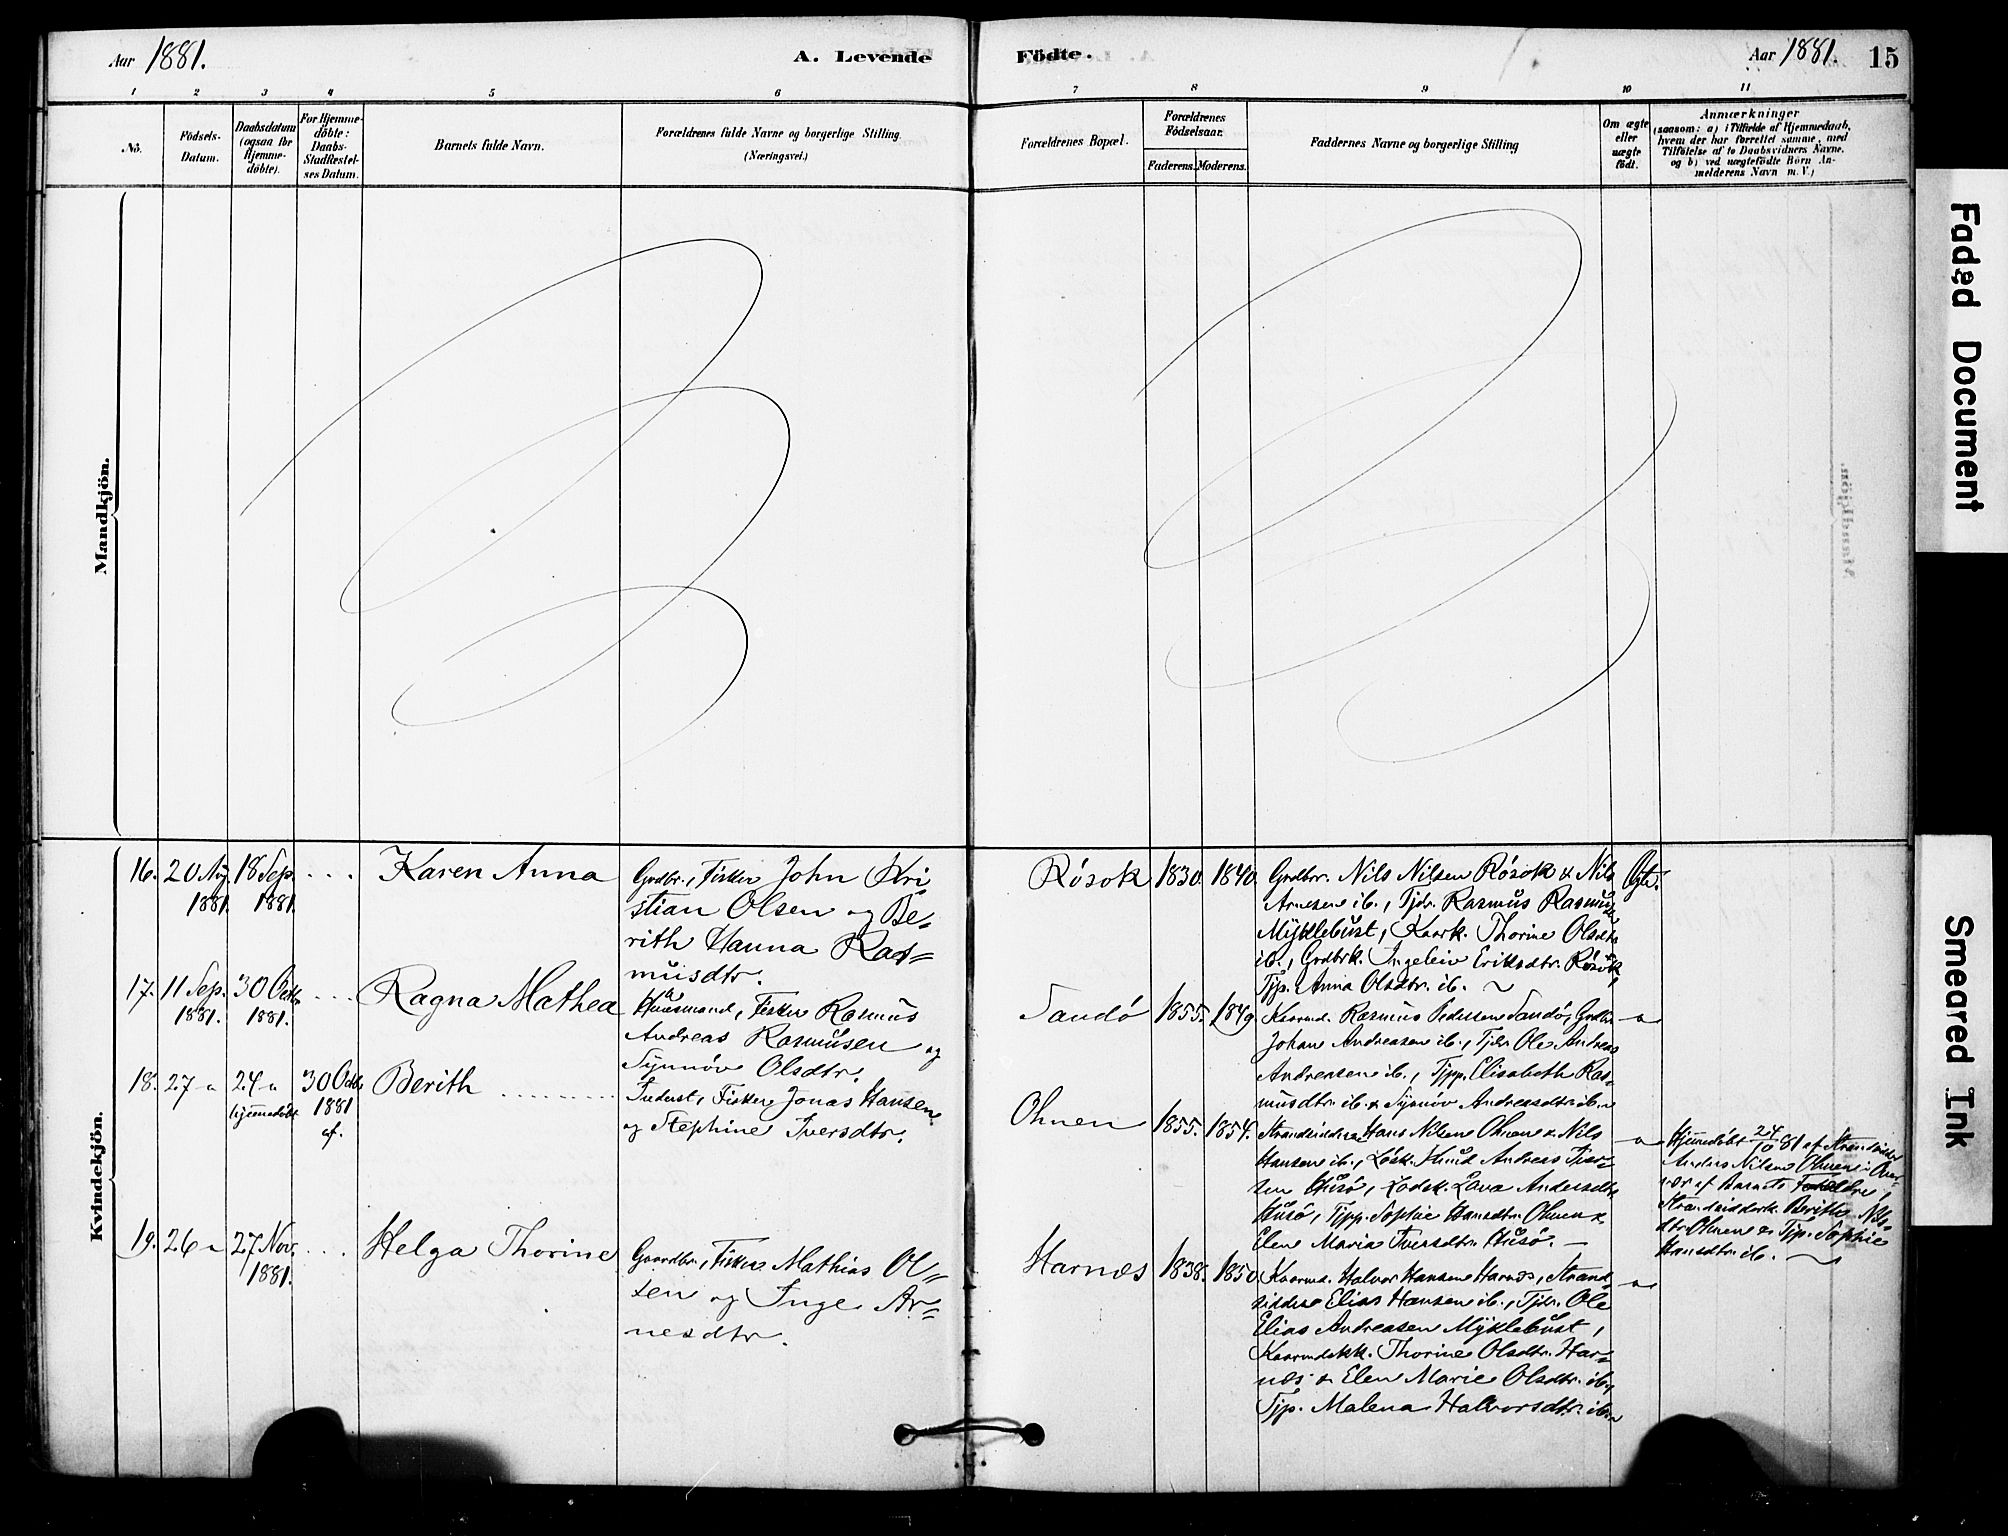 Aar 1881.
A. Levende
Födte.
Aar 1881.
15
1 2 3 4 5 6 7 8 9 10 11
No.
Födsels-
Datum.
Daabsdatum
(ogsaa for
Hjemme-
døbte).
For Hjemme-
døbte:
Daabs-
Stadfæstel-
ses Datum.
Barnets fulde Navn.
Forældrenes fulde Navne og borgerlige Stilling.
(Næringsvei.)
Forældrenes Bopæl.
Forældrenes
Födselsaar.
Faderens. Moderens.
Faddernes Navne og borgerlige Stilling
Om ægte
eller
uægte
född.
Anmærkninger
(saasom: a) i Tilfælde af Hjemmedaab,
hvem der har forrettet samme, med
Tilföielse af to Daabsvidners Navne,
og b) ved uægtefödte Börn An-
melderens Navn m. V.)
Mandkjön.
Kvindekjön.
16. 20 Aug 1881. 18 Sep. 1881. . . . Karen Anna
Grdbr., Fisker John Kri-
stian Olsen og Be-
rith Hanna Ras-
musdtr.
Rösok 1830. 1840.
Grdbr. Nils Nilsen Rösok & Nils
Arnesen ib., Tjdr. Rasmus Rasmus
Myklebust, Kaark. Thorine Olsdtr
ib., Grdbrk. Ingeleiv Eriksdtr. Rösok,
Tjp. Anna Olsdtr. ib.
Ægte.
17. 11 Sep. 1881. 30 Octbr 1881. . . . Ragna Mathea
Huusmand, Fisker Rasmus
Andreas Rasmusen og
Synnöve Olsdtr.
Sandö 1855. 1849.
Kaarmd. Rasmus Pedersen Sandö, Grdbr
Johan Andreasen ib., Tjdr. Ole Andreas
Andreasen ib., Tjpp. Elisabeth Ras-
musdtr. ib. & Synnöv Andreasdtr. ib.
18. 27 " 24 " hjemmedöbt 30 Octbr 1881 Berith
Inderst, Fisker Jonas Hansen
og Stephine Iversdtr.
Ohnen 1855. 1854.
Strandsidder Hans Nilsen Ohnen & Nils
Hansen ib., Lösk. Knud Andreas Iver-
sen Husö, Lösk. Lava Andersdtr
Husö, Tjpp. Sophie Hansdtr. Ohnen &
Elene Maria Iversdtr. Husö.
Hjemmedöbt 24/10 81 af Strandsidder
Anders Nilsen Ohnen i Over-
vær af Barnets Forældre,
Strandsidderk. Berithe Nils-
dtr Ohnen & Tjp. Sophie
Hansdtr. ib.
19. 26 " 27 Nov. 1881. . . . Helga Thorine
Gaardbr., Fisker Mathias Ol-
sen og Inge Ar-
nesdtr.
Harnæs 1838. 1850
Kaarmd. Halvor Hansen Harnæs, Strand-
sidder Elias Hansen ib., Tjdr. Ole
Elias Andreasen Myklebust,
Kaarmdskk. Thorine Olsdtr. Har-
næs & Elen Marie Olsdtr. ib.,
Tjp. Malena Halvorsdtr. ib.
Faded Document
Smeared Ink